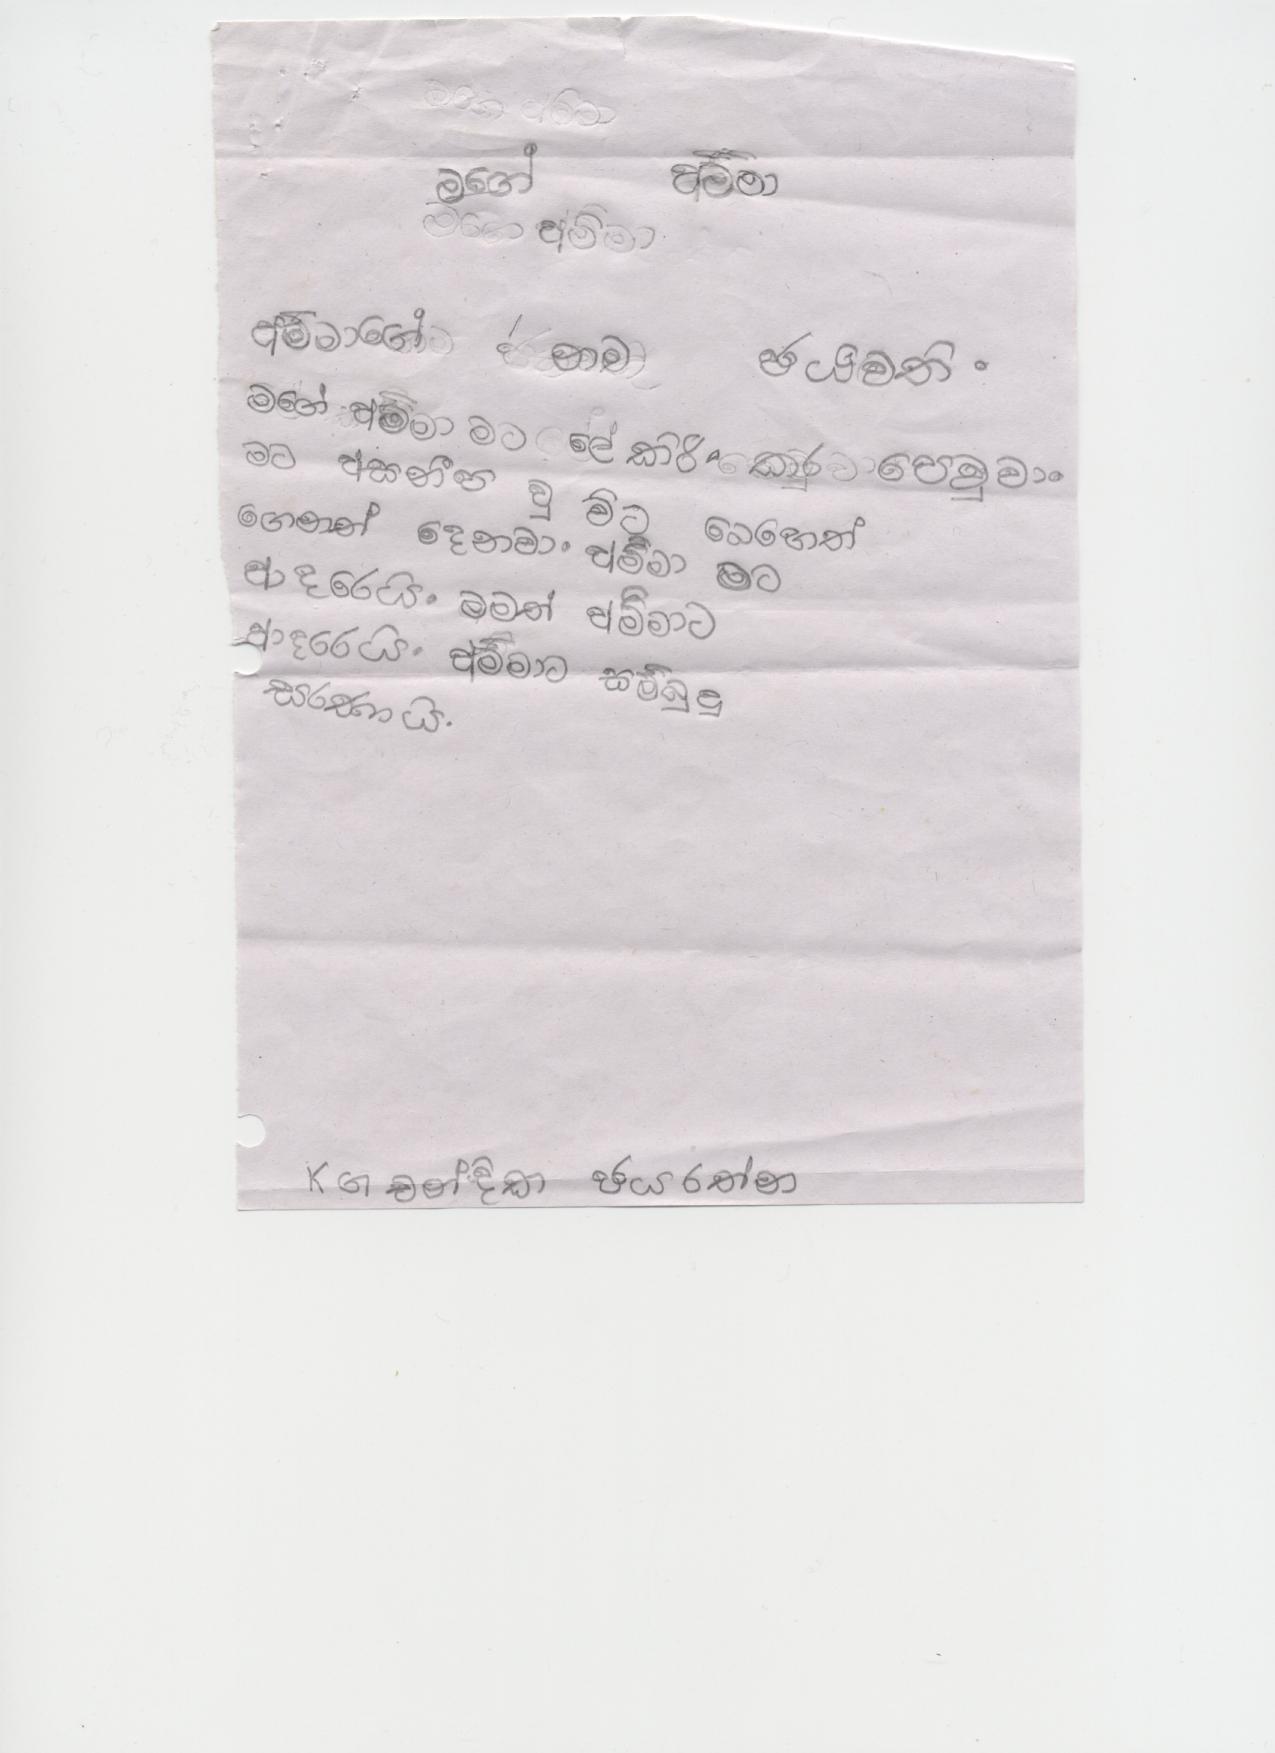 මගේ අම්මා
මගේ අම්මා
මගෙ අම්මා
අම්මාගේ නම ජයවති.
මගේ අම්මා මට ලේ කිරි කොරවා පෙවුවා.
මට අසනීප වු විට බෙහෙත්
ගෙනත් දෙනවා. අම්මා මට
ආදරෙයි. මමත් අම්මාට
ආදරෙයි. අම්මාට සම්බුදු
සරණායි.
K ග චන්දිකා ජයරත්න